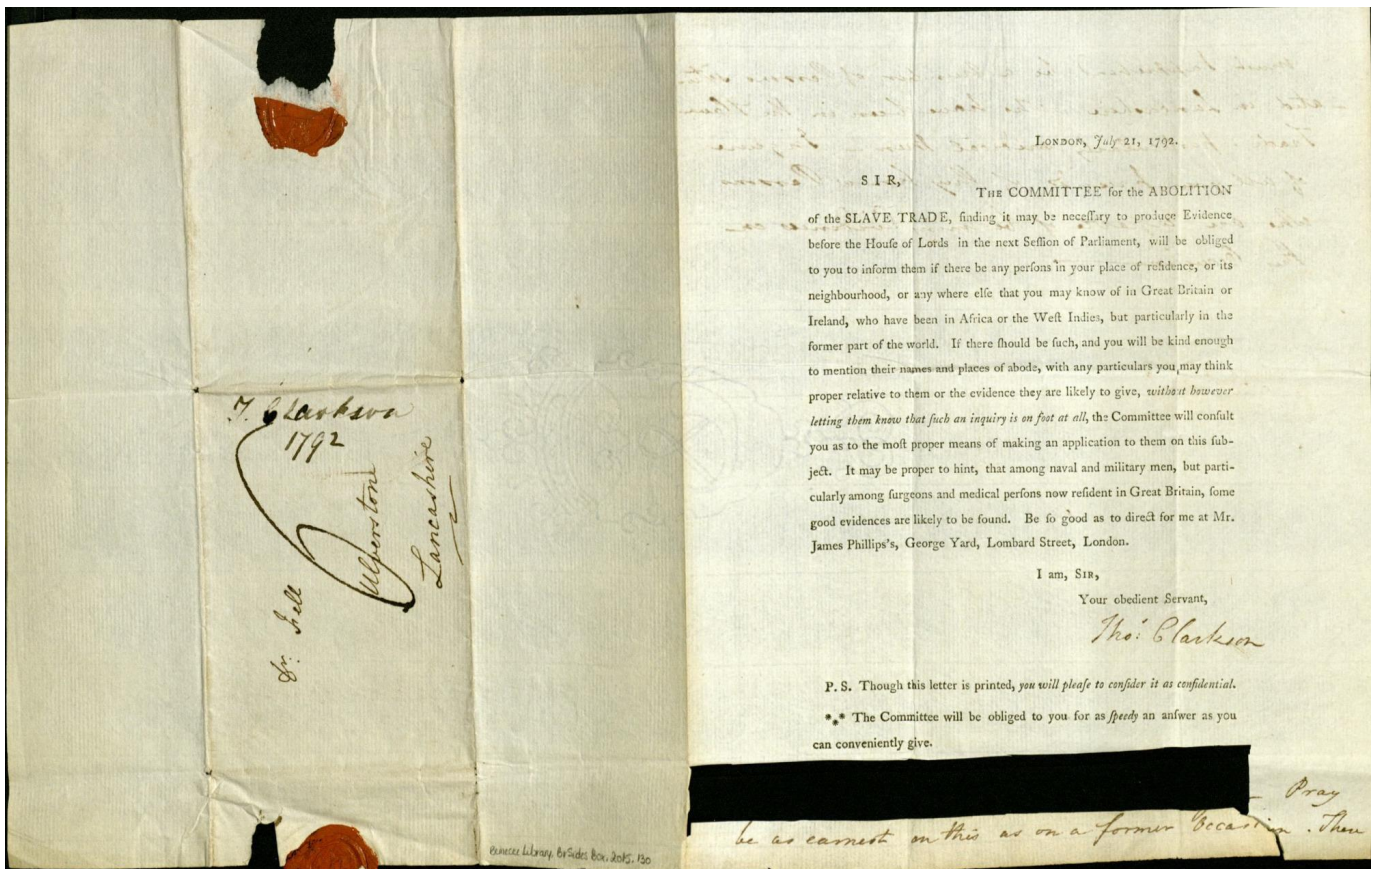 T. Clarkson
1792
Dr. Fell
Ulverstone
Lancashire
Beinecke Library, BrSides Box. 2015. 130
LONDON, July 21, 1792.
SIR,
THE COMMITTEE for the ABOLITION
of the SLAVE TRADE, finding it may be neceſſary to produce Evidence
before the Houſe of Lords in the next Seſſion of Parliament, will be obliged
to you to inform them if there be any perſons in your place of reſidence, or its
neighbourhood, or any where elſe that you may know of in Great Britain or
Ireland, who have been in Africa or the Weſt Indies, but particularly in the
former part of the world. If there ſhould be ſuch, and you will be kind enough
to mention their names and places of abode, with any particulars you may think
proper relative to them or the evidence they are likely to give, without however
letting them know that ſuch an inquiry is on foot at all, the Committee will conſult
you as to the moſt proper means of making an application to them on this ſub-
ject. It may be proper to hint, that among naval and military men, but parti-
cularly among ſurgeons and medical perſons now reſident in Great Britain, ſome
good evidences are likely to be found. Be ſo good as to direct for me at Mr.
James Phillips's, George Yard, Lombard Street, London.
I am, SIR,
Your obedient Servant,
Thos: Clarkson
P. S. Though this letter is printed, you will pleaſe to conſider it as confidential.
*⁎* The Committee will be obliged to you for as ſpeedy an anſwer as you
can conveniently give.
Pray
be as earnest on this as on a former Occasion. There